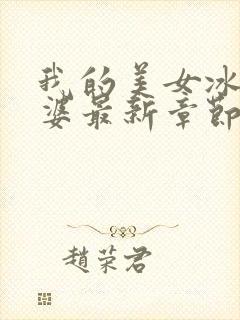 我的美女冰
婆最新章節
趙荣君